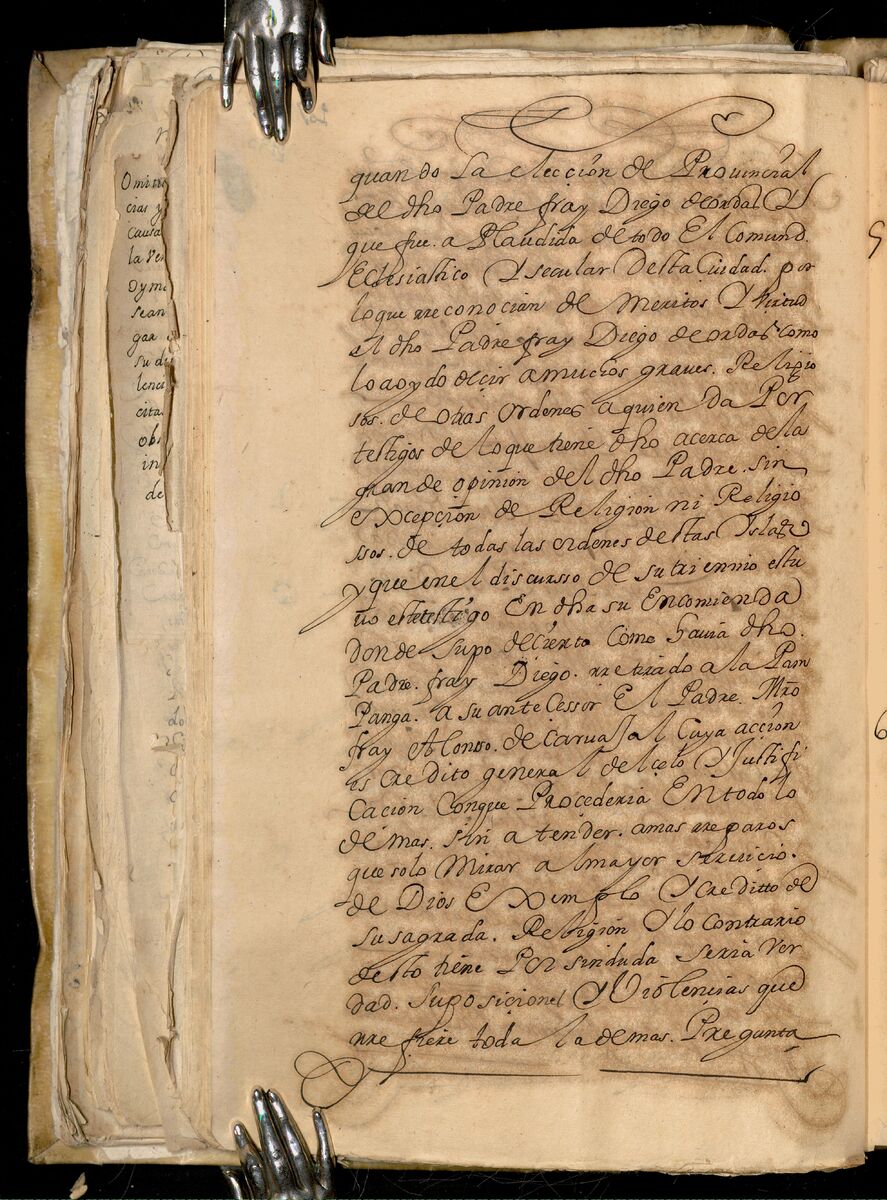 quando La eleccion de Prouincial
del dho Padre fray Diego de ordas Y
que fue. a Plaudida de todo El Comun
Eclesiastico Y secular Desta Ciudad. por
lo que rreconocian de Meritos Y Virtud
el dho Padre fray Diego de ordas como
lo ao ydo decir a muchos graues. Religio
sos. de otras ordenes a quien da Por
testigos de lo que tiene dho acerca de la
grande opinion del dho Padre. sin
excepcion de Religion ni Religio
ssos. de todas las ordenes destas Islas
y que en el discursso de su triennio estu
uo este testigo En dha su Encomienda
donde supo de Cierto Como hauia dho.
Padre. fray Diego. rretirado a la Pam
Panga. a su ante Cessor El Padre. Mro
fray Alonso. de Caruajal Cuya accion
es credito general del celo Y Justifi
cacion Conque Procederia En todo lo
demas. sin atender. a mas rreparos
que solo Mirar al mayor seruicio.
de Dios Exemplo Y creditto de
su sagrada. Religion Y lo contrario
desto tiene Por sin duda seria Ver
dad. suposiciones Y Violencias que
rrefiere toda la demas. Pregunta
Omi
cias y
causa
la Ver
oy m
sean
gar
su d
lenci
cita
obs
in
de